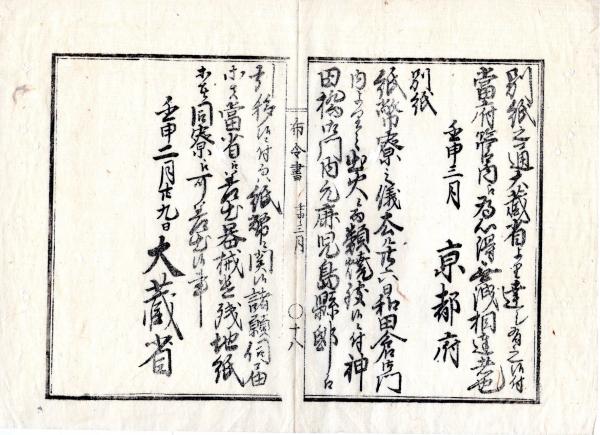 別紙之通大蔵省ゟ達し有之候付
當府管内江為心得無洩相達者也
壬申三月 京都府
別紙
紙幣寮之儀本月廿六日和田倉門
内ゟ出火之為類焼致候ニ付神
田橋御門内元鹿児島縣邸江
布令書 壬申三月 〇十八
引移候ニ付而ハ紙幣ニ関候諸願伺届
等ハ當省江差出器械並残地紙
同寮江可差出候事
壬申二月廿九日 大蔵省